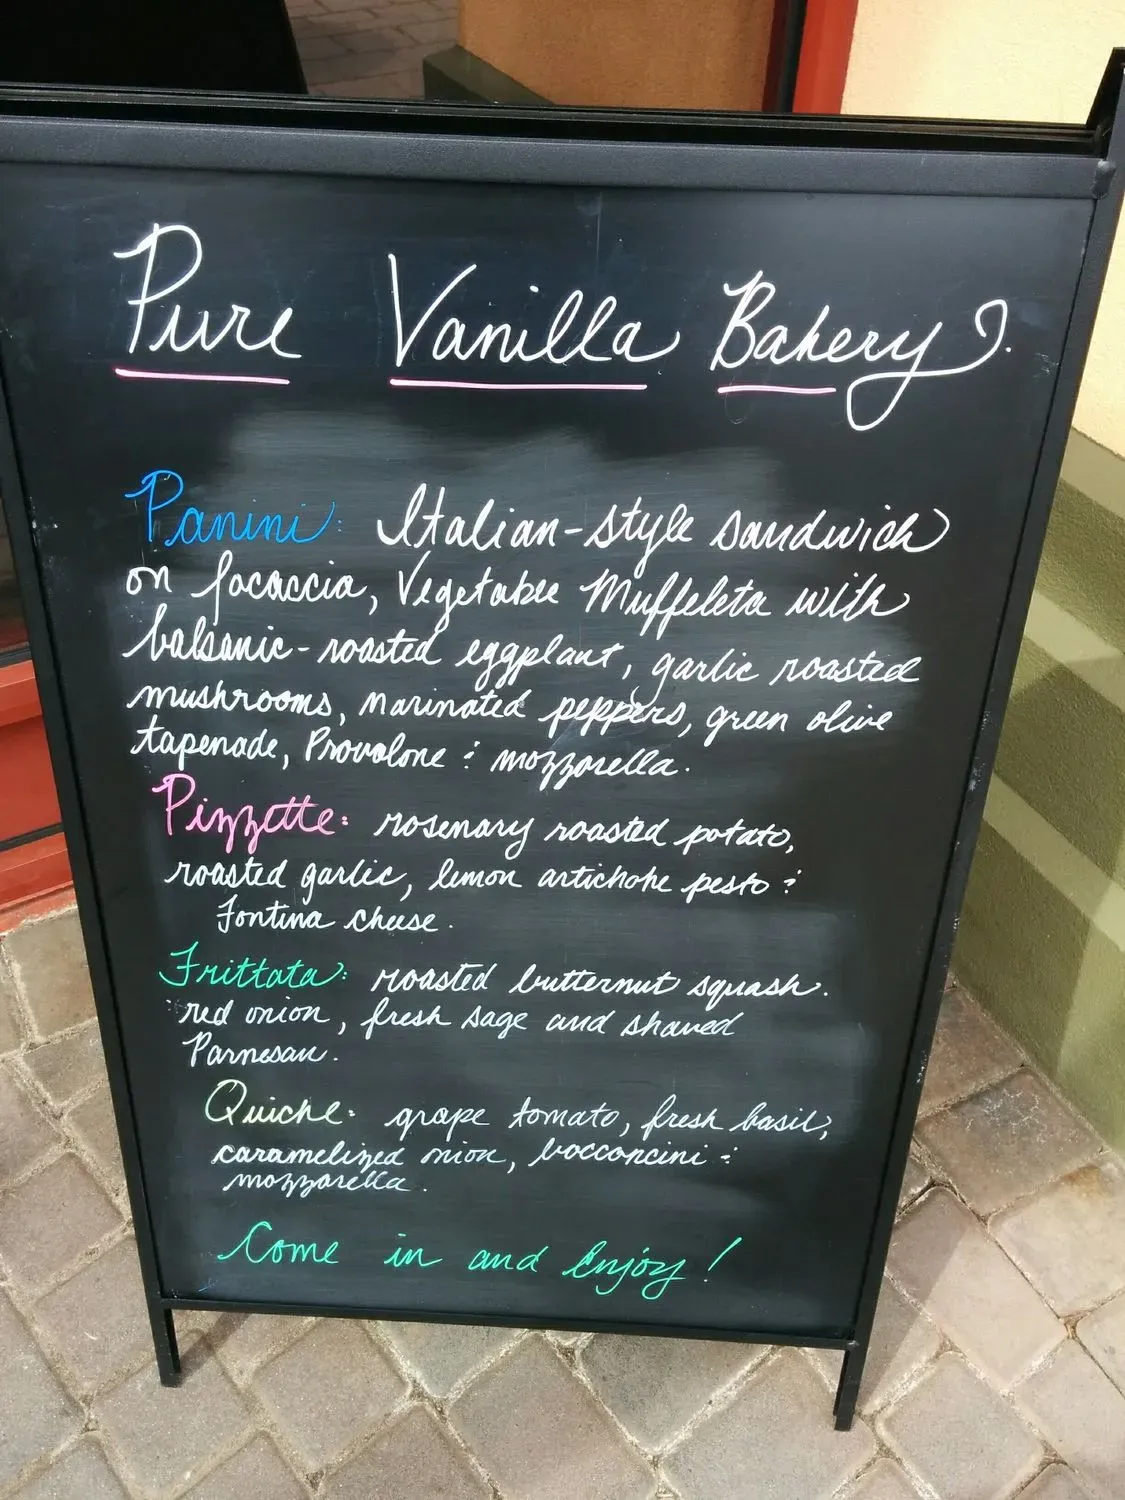 Pure Vanilla Bakery
Panini: Italian-style sandwich
on focaccia, Vegetabee Muffeleta with
balsamic-roasted eggplant, garlic roasted
mushrooms, marinated peppers, green olive
tapenade, Provolone & mozzarella.
Pizzette: rosemary roasted potato,
roasted garlic, lemon artichoke pesto &
Fontina cheese.
Frittata: roasted butternut squash.
red onion, fresh sage and shaved
Parmesan.
Quiche: grape tomato, fresh basil,
caramelized onion, bocconcini &
mozzarella.
Come in and Enjoy!